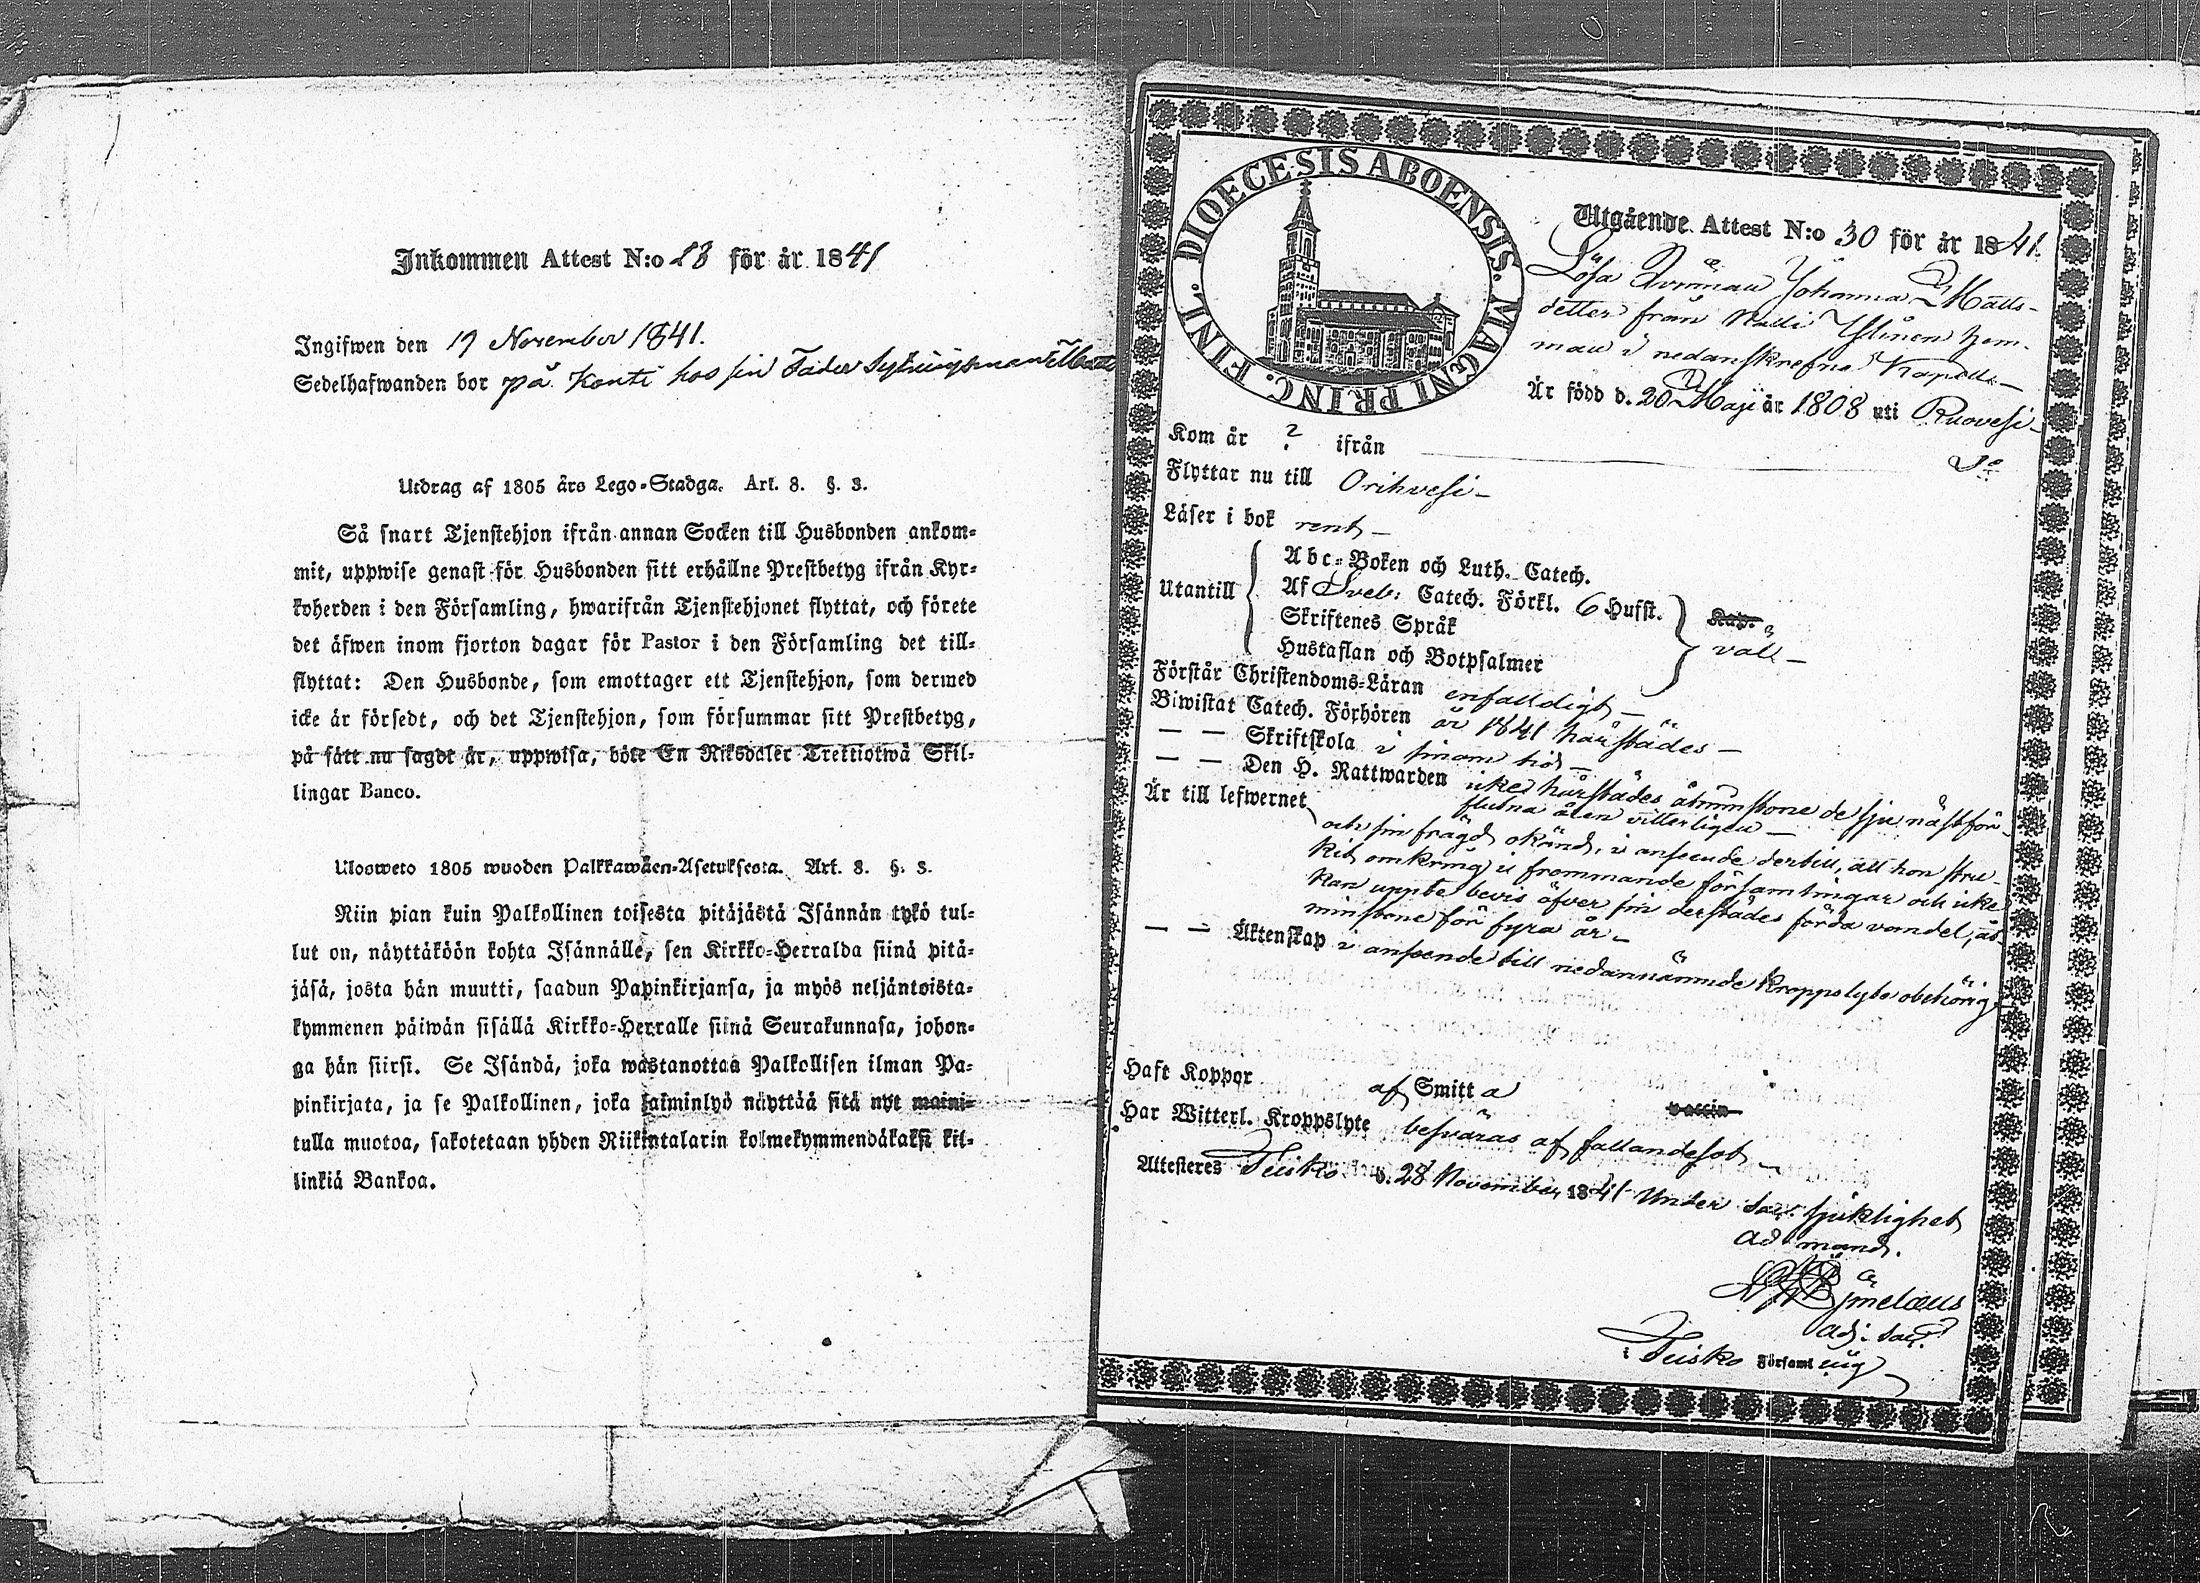 Inkommen Attest N:o 23 för år 1841
Ingifwen den 19 November 1841.
Sedelhafwanden bor på Konti hos sin Fader Sytningsman Matts
Utdrag af 1805 års Lego-Stadga. Art. 8. §. 3.
Så snart Tjenstehjon ifrån annan Socken till Husbonden ankom-
mit, uppwise genast för Husbonden sitt erhållne Prestbetyg ifrån Kyr-
koherden i den Församling, hwarifrån Tjenstehjonet flyttat, och förete
det äfwen inom fjorton dagar för Pastor i den Församling det till-
flyttat: Den Husbonde, som emottager ett Tjenstehjon, som dermed
icke är försedt, och det Tjenstehjon, som försummar sitt Prestbetyg,
på sätt nu sagdt är, uppwisa, böte En Riksdaler Trettiotwå Skil-
lingar Banco.
Ulosweto 1805 wuoden Palkkawäen-Asetuksesta. Art. 8. §. 3.
Niin pian kuin Palkollinen toisesta pitäjästä Isännän tykö tul-
lut on, näyttäköön kohta Isännälle, sen Kirkko-Herralda siinä pitä-
jäsä, josta hän muutti, saadun Papinkirjansa, ja myös neljäntoista-
kymmenen päiwän sisällä Kirkko-Herralle siinä Seurakunnasa, johon-
ga hän siirsi. Se Isändä, joka wastanottaa Palkollisen ilman Pa-
pinkirjata, ja se Palkollinen, joka laiminlyö näyttää sitä nyt maini-
tulla muotoa, sakotetaan yhden Riikintalarin kolmekymmendäkaksi kil-
linkiä Bankoa.
DIOECESIS ABOENSIS. MAGNI PRINC. FINL.
Utgående Attest N:o 30 för år 1841.
Lösa Qvinnan Johanna Matts-
detter från Ylinen hem-
man i nedanskrefne Kapell-
Är född d. 20 Maji år 1808 uti Ruovesi-
Kom år ? ifrån
Flyttar nu till Orihvesi-
Läser i bok rent-
Utantill
Abc-Boken och Luth. Catech.
Af Sveb: Catech. Förkl. 6 Hufst.
Skriftenes Språk
Hustaflan och Botpsalmer
Kap.
väl-
Förstår Christendoms-Läran enfalldigt-
Biwistat Catech. Förhören år 1841 härstädes-
— — Skriftskola i sinom tid-
— — Den H. Nattwarden icke härstädes åtminstone de sju nästför-
flutna åren vitterligen-
Är till lefwernet och sin frägd okänd, i anseende dertill, att hon stru-
kit omkring i frammande församlingar och icke
kan uppte bevis öfver sin derstädes förda vandel, åt
minstone för fyra år-
— — Äktenskap i anseende till nedannämnde kroppslyte obehörig
Haft Koppor af Smitta vaccin
Har Witterl. Kroppslyte besväras af fallandesot-
Attesteres Teisko d. 28 November 1841 Under sjuklighet
Ad mand.
adj: Sacr
i Teisko Församling